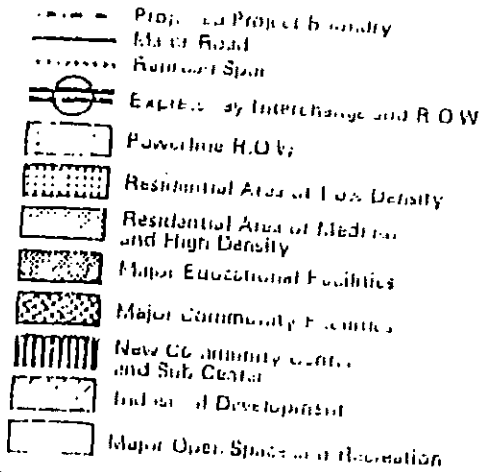 Project
Major Road
Railroad Spur
Expressway Interchange and R.O.W
Powerline R.O.W
Residential Area of Low Density
Residential Area of Medium
and High Density
Major Educational Facilities
Major Community Facilities
New Community Center
and Sub Center
Industrial Development
Major Open Space and Recreation